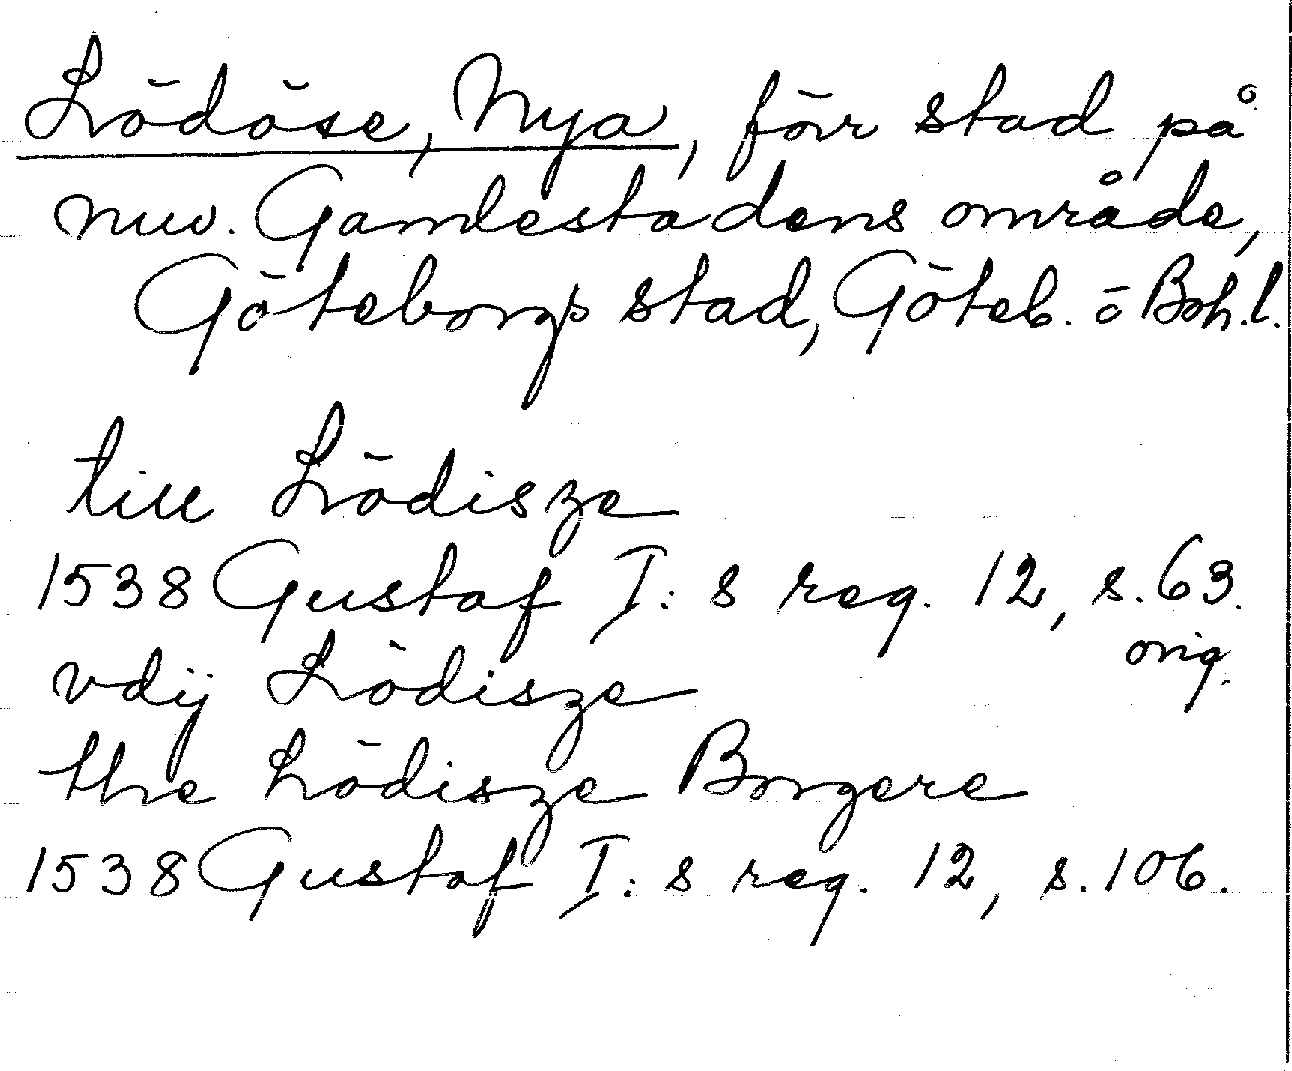 Lödöse, Nya, förr stad på
nuv. Gamlestadens område,
Göteborgs stad, Göteb. o Boh.l.
till Lödisze
1538 Gustaf I:s reg. 12, s. 63.
orig.
vdij Lödisze
the Lödisze Borgere
1538 Gustaf I:s reg. 12, s. 106.